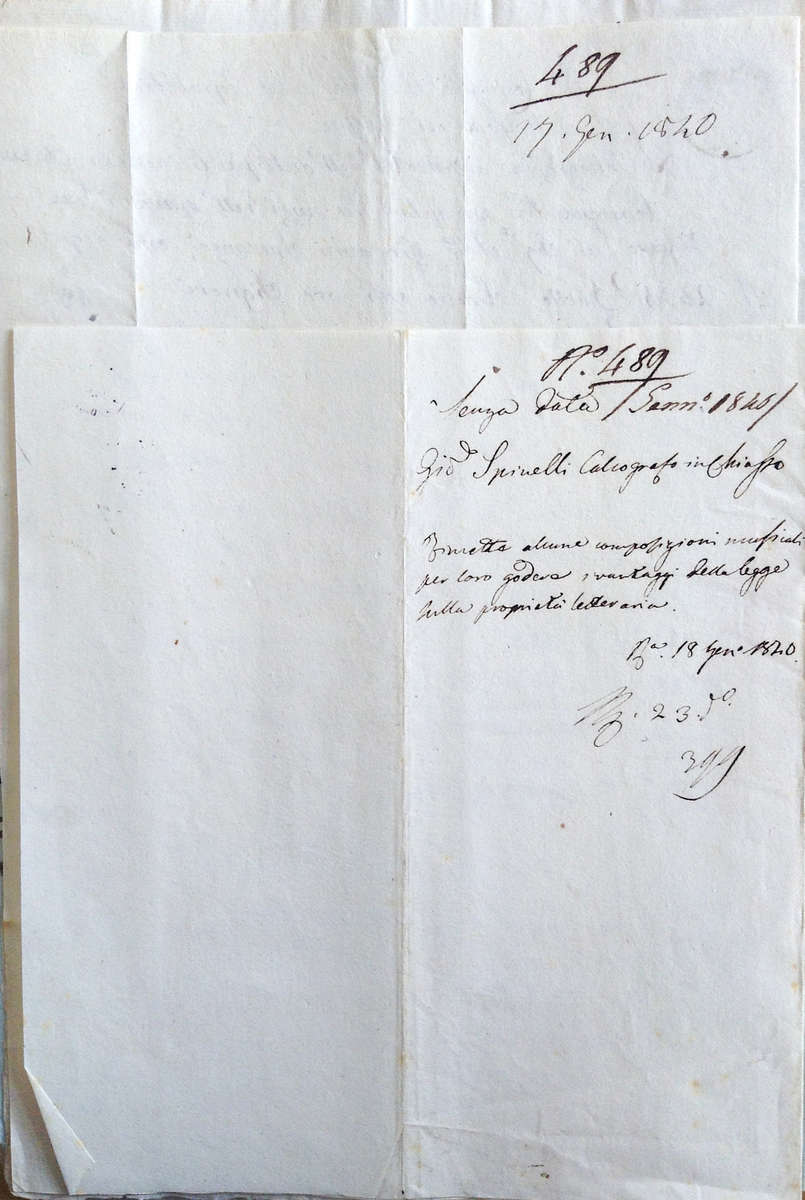 489
17. Gen. 1840
N.º 489
Senza data /Genn.º 1840/
Spinelli Calcografo in Chiasso
Rimette alcune composizioni musicali
per loro godere i vantaggi della legge
sulla proprietà letteraria.
18 Gen.º 1840.
23. d.º
399